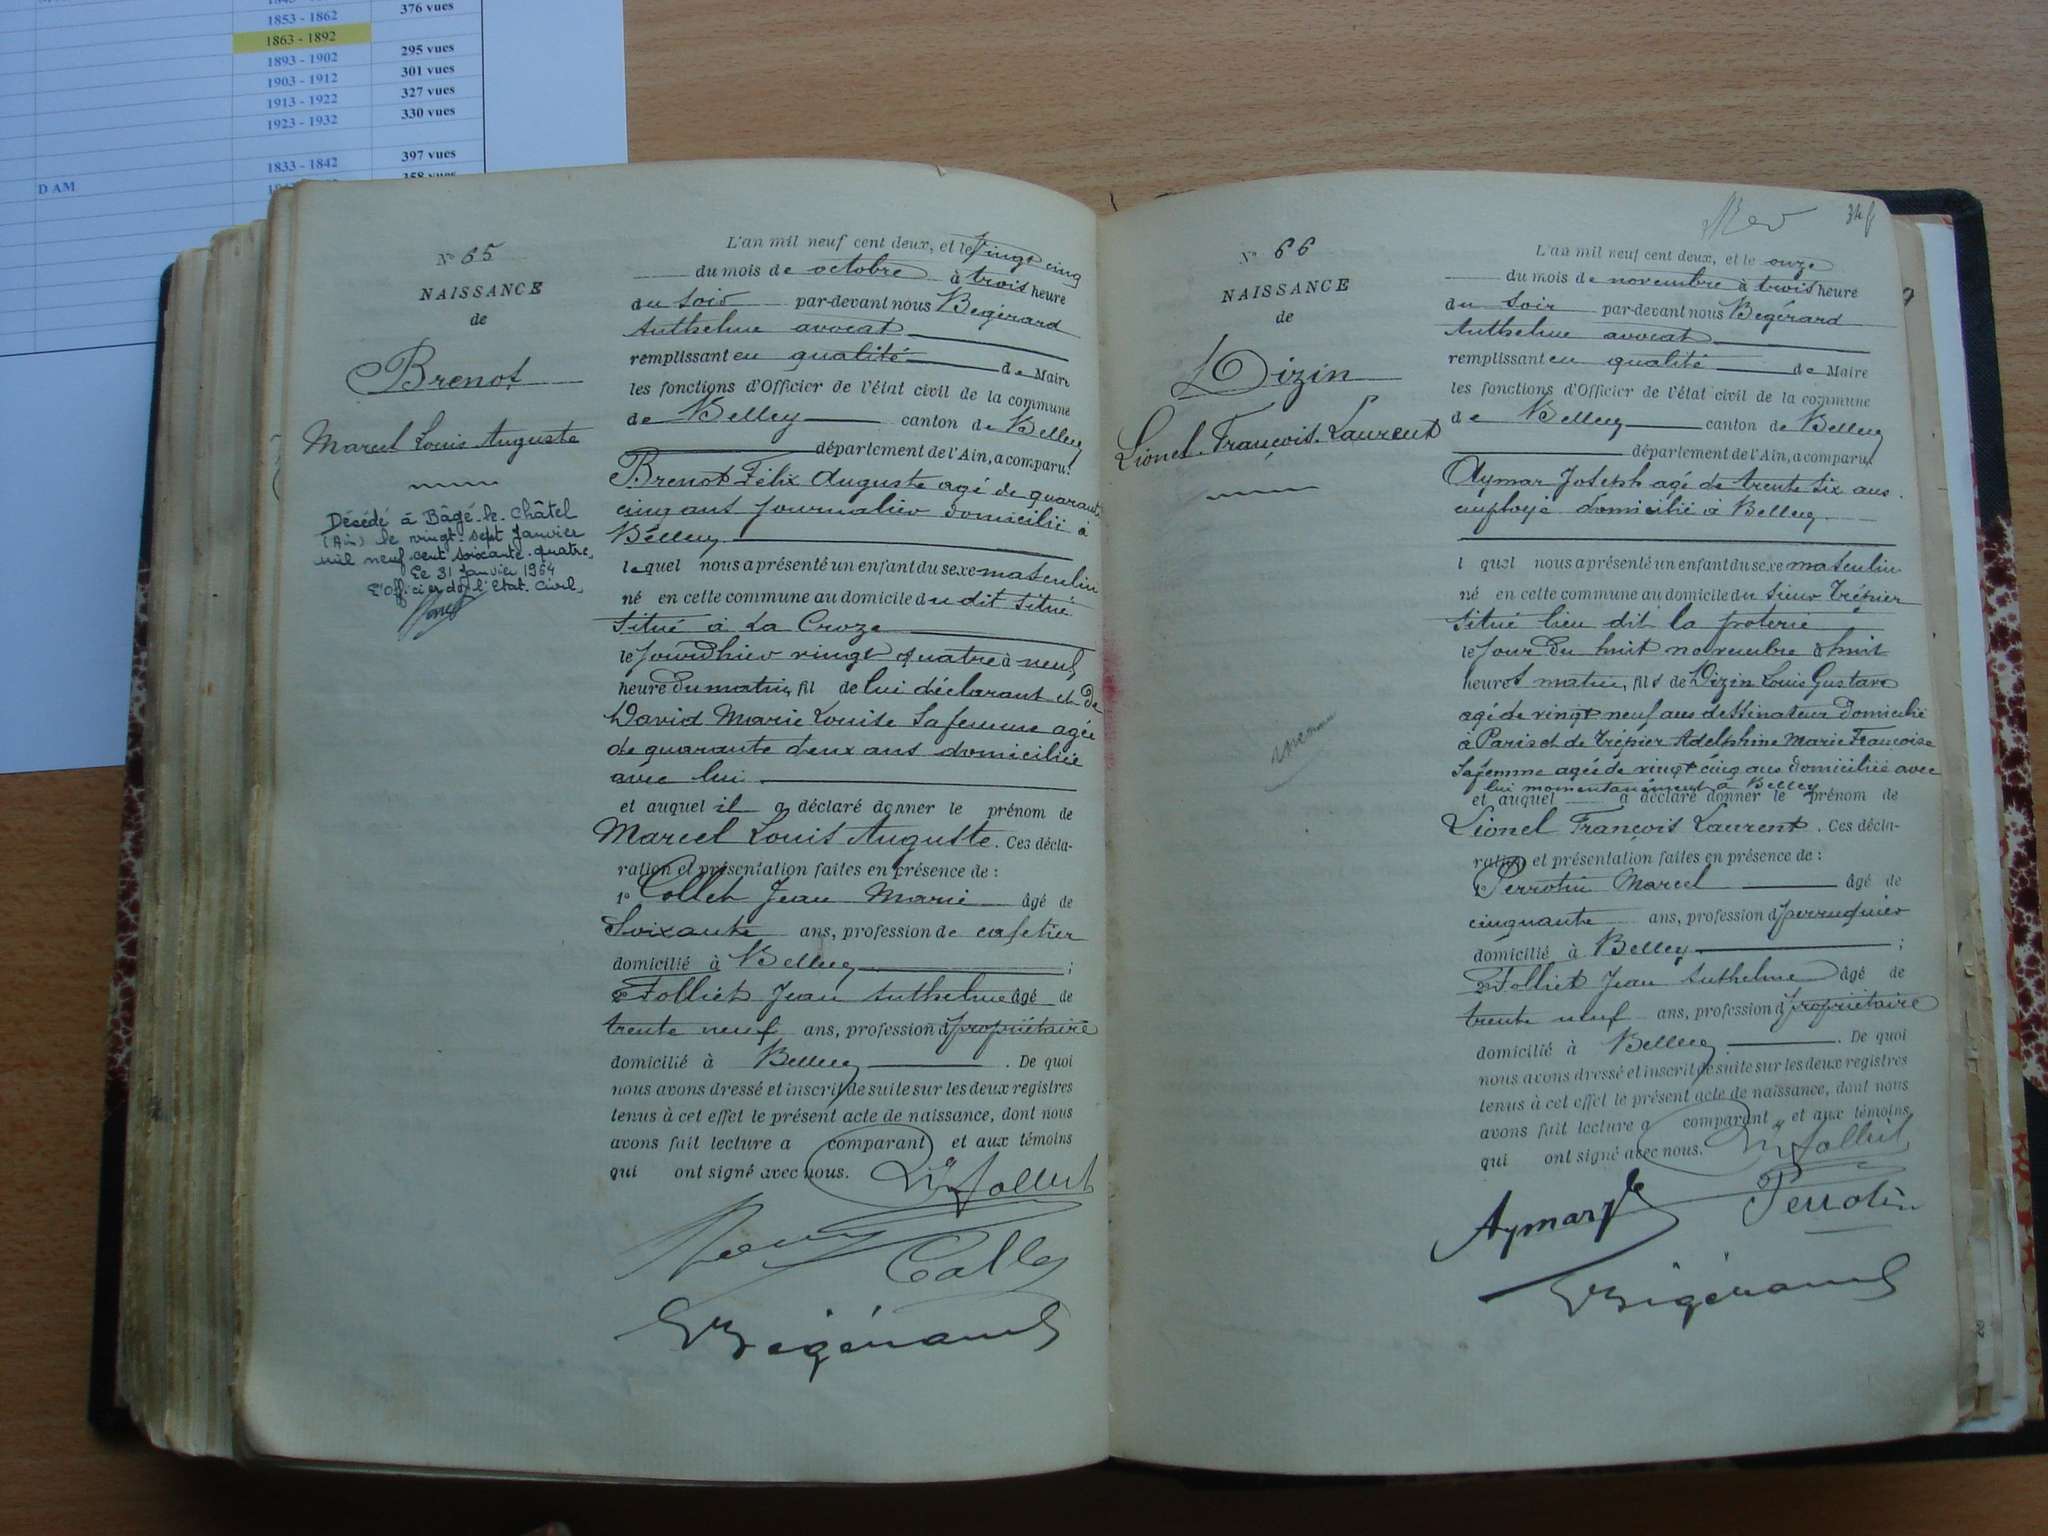 1853 - 1862 376 vues
1863 - 1892
1893 - 1902 295 vues
1903 - 1912 301 vues
1913 - 1922 327 vues
1923 - 1932 330 vues
1833 - 1842 397 vues
D AM 358 vues
N° 65
NAISSANCE
de
Brenot
Marcel Louis Auguste
Décédé à Bâgé-le-Châtel
(Ain) le vingt-sept Janvier
mil neuf cent soixante-quatre.
Le 31 Janvier 1964
L'Officier de l'Etat-Civil,
L'an mil neuf cent deux, et le vingt cinq
du mois de octobre à trois heure
du soir par-devant nous Begérard
Anthelme avocat
remplissant en qualité de Maire
les fonctions d'Officier de l'état civil de la commune
de Belley canton de Belley
département de l'Ain, a comparu:
Brenot Félix Auguste agé de quarante
cinq ans journalier domicilié à
Belley
lequel nous a présenté un enfant du sexe masculin
né en cette commune au domicile du dit situé
situé à La Croze
le jourdhier vingt quatre à neuf
heure du matin, fil de lui déclarant et de
David Marie Louise sa femme agée
de quarante deux ans domiciliée
avec lui
et auquel il a déclaré donner le prénom de
Marcel Louis Auguste. Ces décla-
ration et présentation faites en présence de :
1° Collet Jean Marie âgé de
soixante ans, profession de cafetier
domicilié à Belley ;
2° Folliet Jean Anthelme âgé de
trente neuf ans, profession d propriétaire
domicilié à Belley . De quoi
nous avons dressé et inscrit de suite sur les deux registres
tenus à cet effet le présent acte de naissance, dont nous
avons fait lecture a comparant et aux témoins
qui ont signé avec nous.
Folliet
Collet
Begérard
34
N° 66
NAISSANCE
de
Dizin
Lionel François Laurent
L'an mil neuf cent deux, et le onze
du mois de novembre à trois heure
du soir par-devant nous Begérard
Anthelme avocat
remplissant en qualité de Maire
les fonctions d'Officier de l'état civil de la commune
de Belley canton de Belley
département de l'Ain, a comparu
Aymar Joseph agé de trente six ans
employé domicilié à Belley
l quel nous a présenté un enfant du sexe masculin
né en cette commune au domicile du sieur Trépier
situé lieu dit la poterie
le jour du huit novembre à huit
heures matin, fils de Dizin Louis Gustave
agé de vingt neuf ans dessinateur domicilié
à Paris et de Trépier Adelphine Marie Françoise
sa femme agée de vingt cinq ans domiciliée avec
lui momentanément à Belley
et auquel a déclaré donner le prénom de
Lionel François Laurent. Ces décla-
ration et présentation faites en présence de :
1° Perrotin Marcel âgé de
cinquante ans, profession d perruquier
domicilié à Belley ;
2° Folliet Jean Anthelme âgé de
trente neuf ans, profession d propriétaire
domicilié à Belley . De quoi
nous avons dressé et inscrit de suite sur les deux registres
tenus à cet effet le présent acte de naissance, dont nous
avons fait lecture a comparant et aux témoins
qui ont signé avec nous.
Folliet
Aymar Perrotin
Begérard